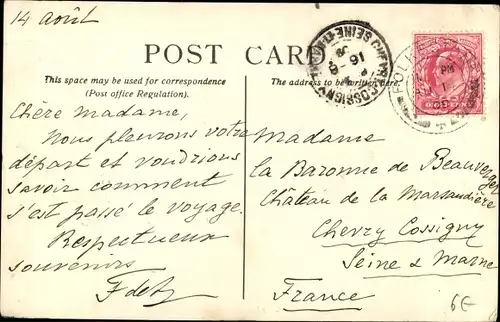 14 août
POST CARD
This space may be used for correspondence
(Post office Regulation).
The address to be written here.
Chère Madame,
Nous pleurons votre
départ et voudrions
savoir comment
s'est passé le voyage.
Respectueux
souvenirs
Madame
la Baronne de Beauverger
Château de la Marsaudière
Chevry Cossigny
Seine & Marne
France
6€